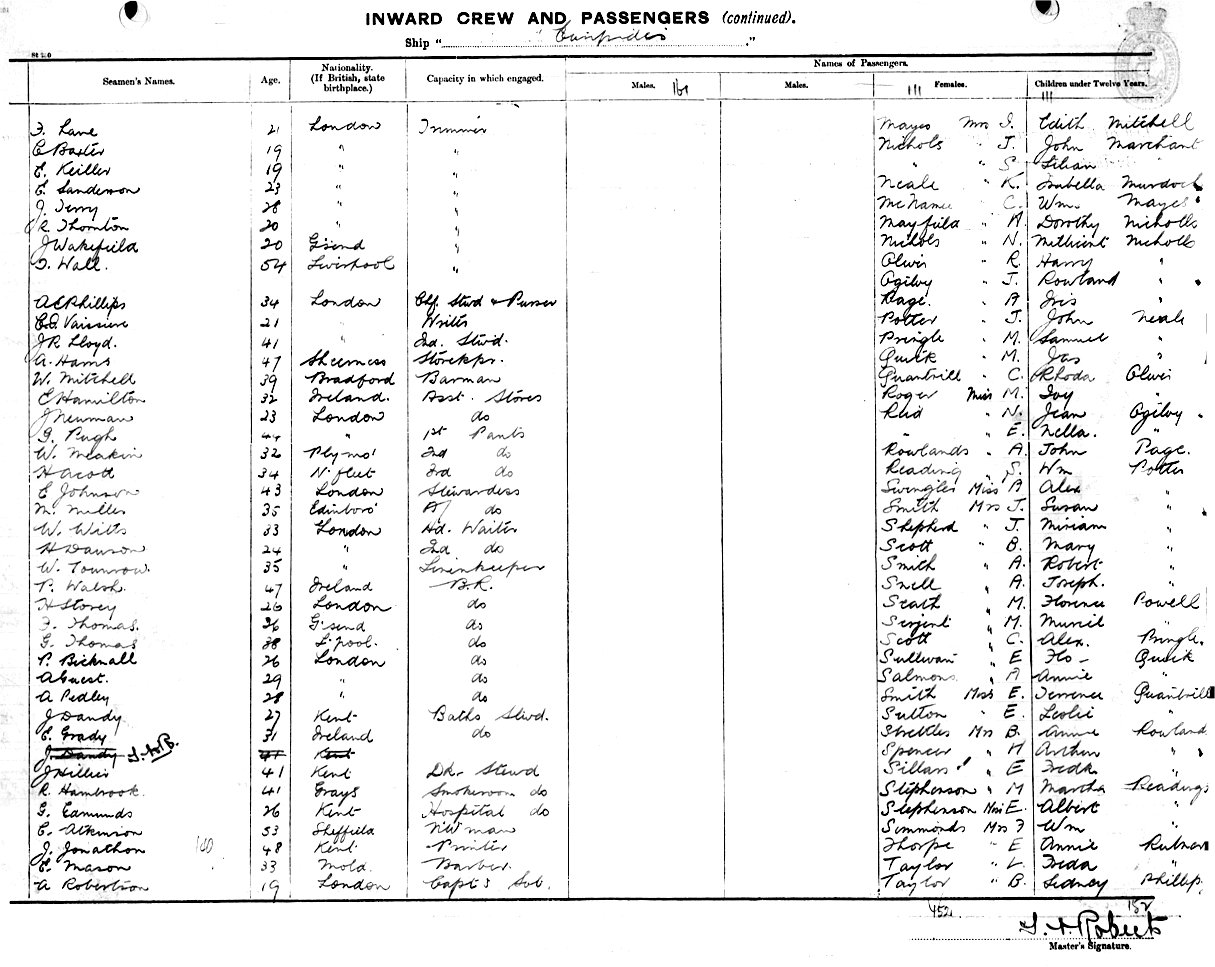 INWARD CREW AND PASSENGERS (continued).
Ship "Euripides"
Seamen's Names. Age. Nationality. (If British, state birthplace.) Capacity in which engaged. Names of Passengers.
Males. 161 Males. 111 Females. Children under Twelve Years. 111
F. Lane 21 London Trimmer Mayes Mrs I. Edith Mitchell
C Baxter 19 " " Nichols " J. John Marchant
E. Keiller 19 " " " " S. Lilian "
E. Sanderson 23 " " Neale " K. Isabella Murdoch
J. Terry 28 " " McNamee " C. Wm Mayes
R. Thornton 20 " " Mayfield " A. Dorothy Nicholls
J Wakefield 20 G'send " Nichols " N. Nicholls
Wall. 54 Liverpool " Olwis R. Harry "
Ogilvy " J. Rowland "
A C Phillips 34 London Chf. Stwd & Purser Page. " A Iris "
Vaissiere 21 " Writer Potter " J. John Neale
J R Lloyd. 41 " 2nd. Stwd. Pringle " M. Samuel "
A. Harris 47 Sheerness Storekpr. Quick " M. Jas "
W. Mitchell 39 Bradford Barman Quantrill " C. Rhoda Olwis
C Hamilton 32 Ireland. Asst. Stores Roger Miss M. Ivy "
J Newman 23 London do Reid " N. Jean Ogilvy
G. Pugh 44 " 1st Pants " " E. Nella. "
W. Meakin 32 Plymo' 2nd do Rowlands " A. John Page.
H Acott 34 N'fleet 3rd do Reading " S. Wm Potter
E Johnson 43 London Stewardess Swingler Miss A Alex "
M. Miller 35 Edinboro' A/ do Smith Mrs J. Susan "
W. Witts 33 London Hd. Waiter Shepherd " J. Miriam "
H Dawson 24 " 2nd do Scott " B. Mary "
W. Tomrow. 35 " Linenkeeper Smith " A. Robert "
P. Walsh. 47 Ireland B.R. Snell " A. Joseph. "
H Storey 26 London do " M. Florence Powell
F. Thomas. 36 G'send do Serjent " M. Muriel "
G. Thomas 38 L'pool. do Scott " C. Alex. Pringle.
P. Bicknall 26 London do Sullivan " E Flo- Quick
A Guest. 29 " do Salmons " A Annie "
A Pedley 28 " do Smith Miss E. Terrence Quantrill
J Dandy 27 Kent Baths Stwd. Sutton " E. Leslie "
E. Grady 31 Ireland do Mrs B. Annie Rowland
J. Dandy 41 Kent Spencer " H Arthur "
J Hillier 41 Kent Dk. Stewd Sillars " E Fredk "
R. Hambrook. 41 Grays Smokeroom do Stephenson " M Martha Readings
G. Edmunds 26 Kent Hospital do Stephenson Miss E. Albert "
E. Atkinson 53 Sheffield NW man Simmonds Mrs F Wm "
J. Jonathon 48 Kent Printer Thorpe " E Annie
E. Mason 33 Mold. Barber. Taylor " L. Freda "
A Robertson 19 London Capt's Svt. Taylor " B. Sidney Phillips
452 152
Roberts
Master's Signature.